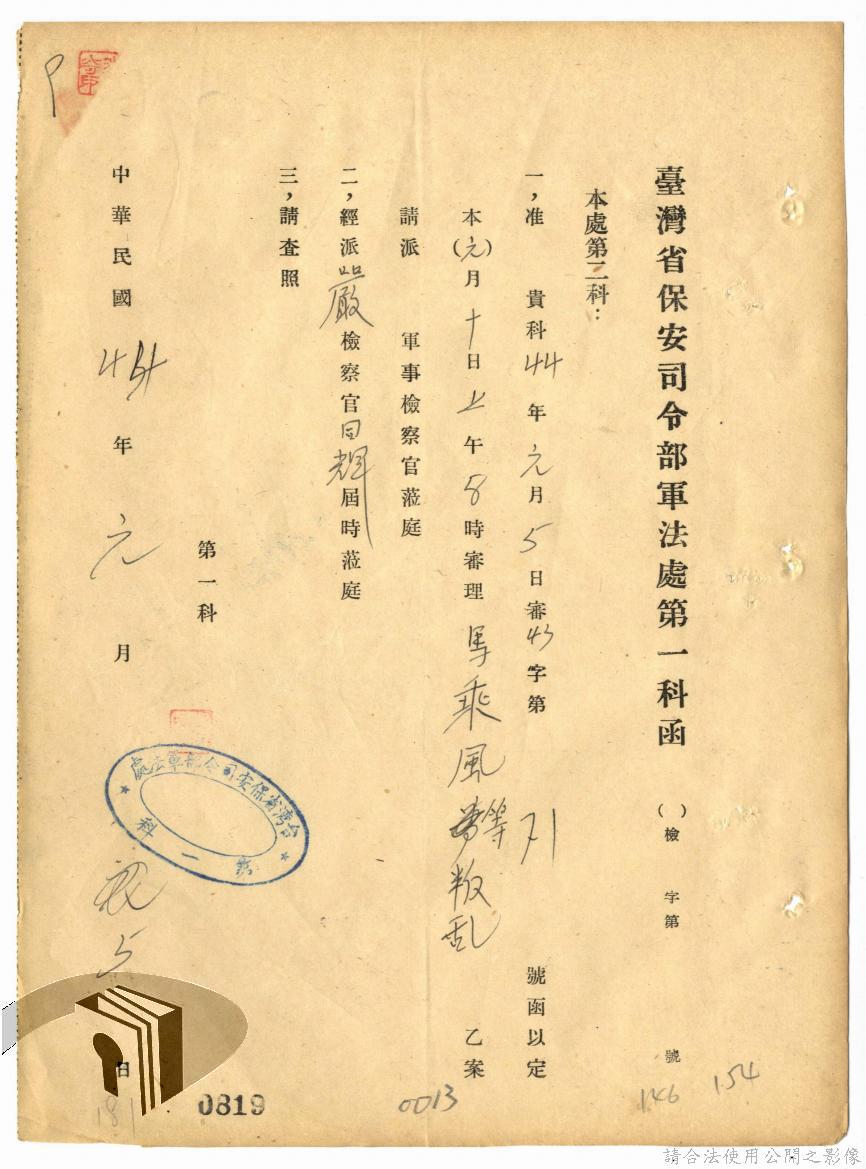 臺灣省保安司令部軍法處第一科函 ( )檢 字第 號
本處第二科：
一，准 貴科44年元月5日審 字第 號函以定
本(元)月十日上午8時審理 馬乘風 等叛乱 乙案
請派 軍事檢察官蒞庭
二，經派嚴檢察官 輝屆時蒞庭
三，請查照
第一科
中華民國44年元月 5日
台灣省保安司令部軍法處
第一科
146
154
0013
0819
181
請合法使用公開之影像